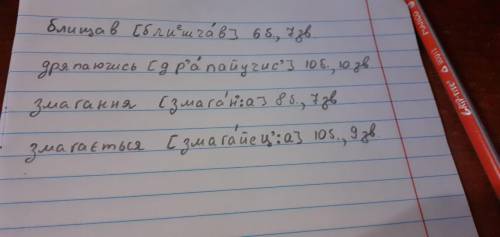 блищав [блиᵉшча́в] 6б., 7зв
дряпаючись [др'а́пайучис'] 10б., 10зв
змагання [змага́н':а] 8б., 7зв
змагається [змага́йец':а] 10б., 9зв